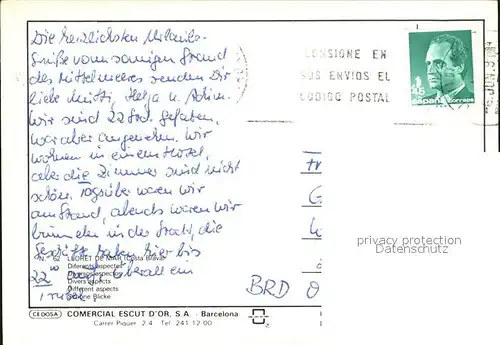 Die herzlichsten Urlaubs-
Grüße vom sonnigen Strand
des Mittelmeeres senden Dir
liebe Mutti, Helga u. Achim.
Wir sind 22 Std. gefahren,
war aber angenehm. Wir
wohnen in einem Hotel,
aber die Zimmer sind nicht
schön. Tagsüber waren wir
am Strand, abends waren wir
in der Stadt, die
Geschäfte haben hier bis
22 00 überall ein
CONSIGNE EN
SUS ENVIOS EL
CODIGO POSTAL
España CORREOS
privacy protection
BRD
N.º 62 LLORET DE MAR (Costa Brava)
Diferents aspectes
Diversos aspectos
Divers aspects
Different aspects
Blicke
CEDOSA COMERCIAL ESCUT D'OR, S.A. - Barcelona
Carrer Piquer, 2-4 Tel. 241 12 00